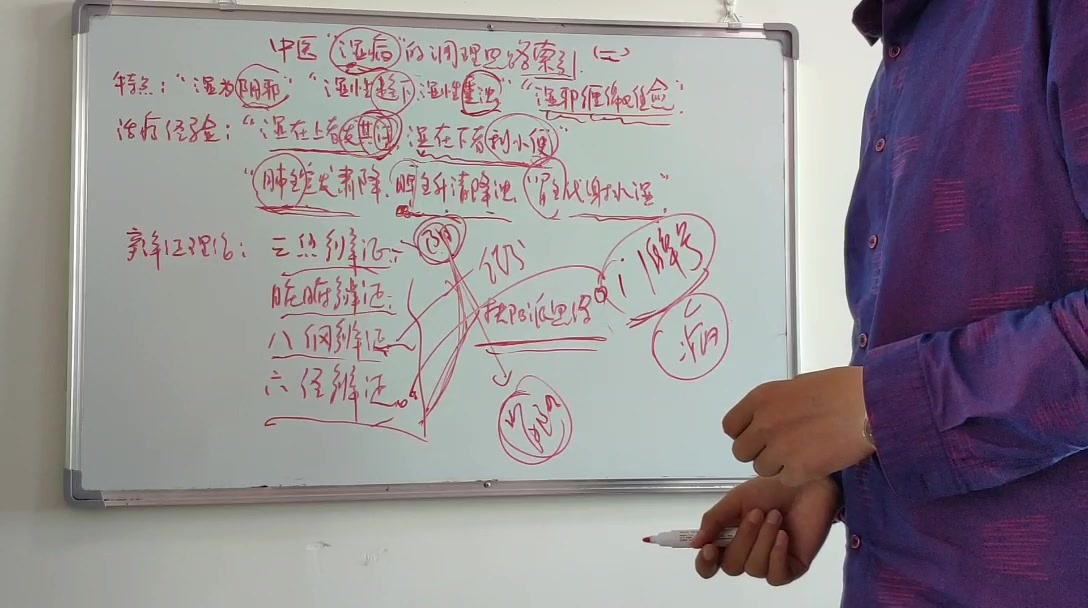 中医“湿病”的调理思路索引(二)
特点：“湿为阴邪”“湿性趋下，湿性重浊”“湿邪缠绵难愈”
治病经验：“湿在上者发其汗，湿在下者利小便”
“肺主宣发肃降，脾主升清降浊，肾主代谢水湿”
辨证理论：三焦辨证：
脏腑辨证：
八纲辨证
六经辨证
扶阳派思络